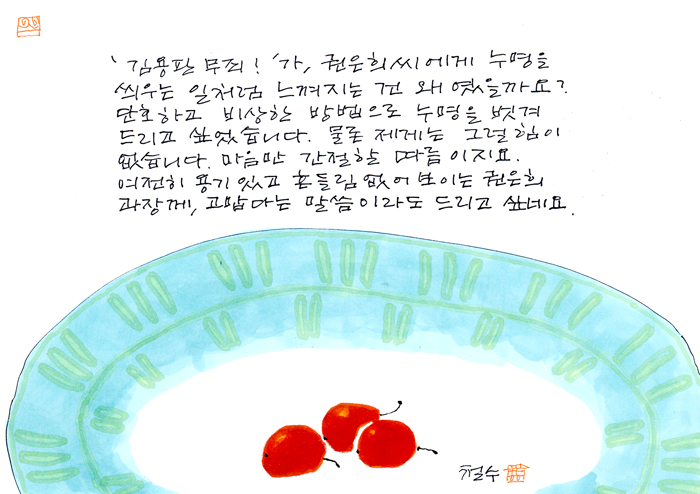 '김용판 무죄!'가, 권은희씨에게 누명을
씌우는 일처럼 느껴지는 건 왜였을까요?
단호하고 비상한 방법으로 누명을 벗겨
드리고 싶었습니다. 물론 제게는 그럴 힘이
없습니다. 마음만 간절할 따름이지요.
여전히 용기있고 흔들림없어 보이는 권은희
과장께, 고맙다는 말씀이라도 드리고 싶네요.
철수